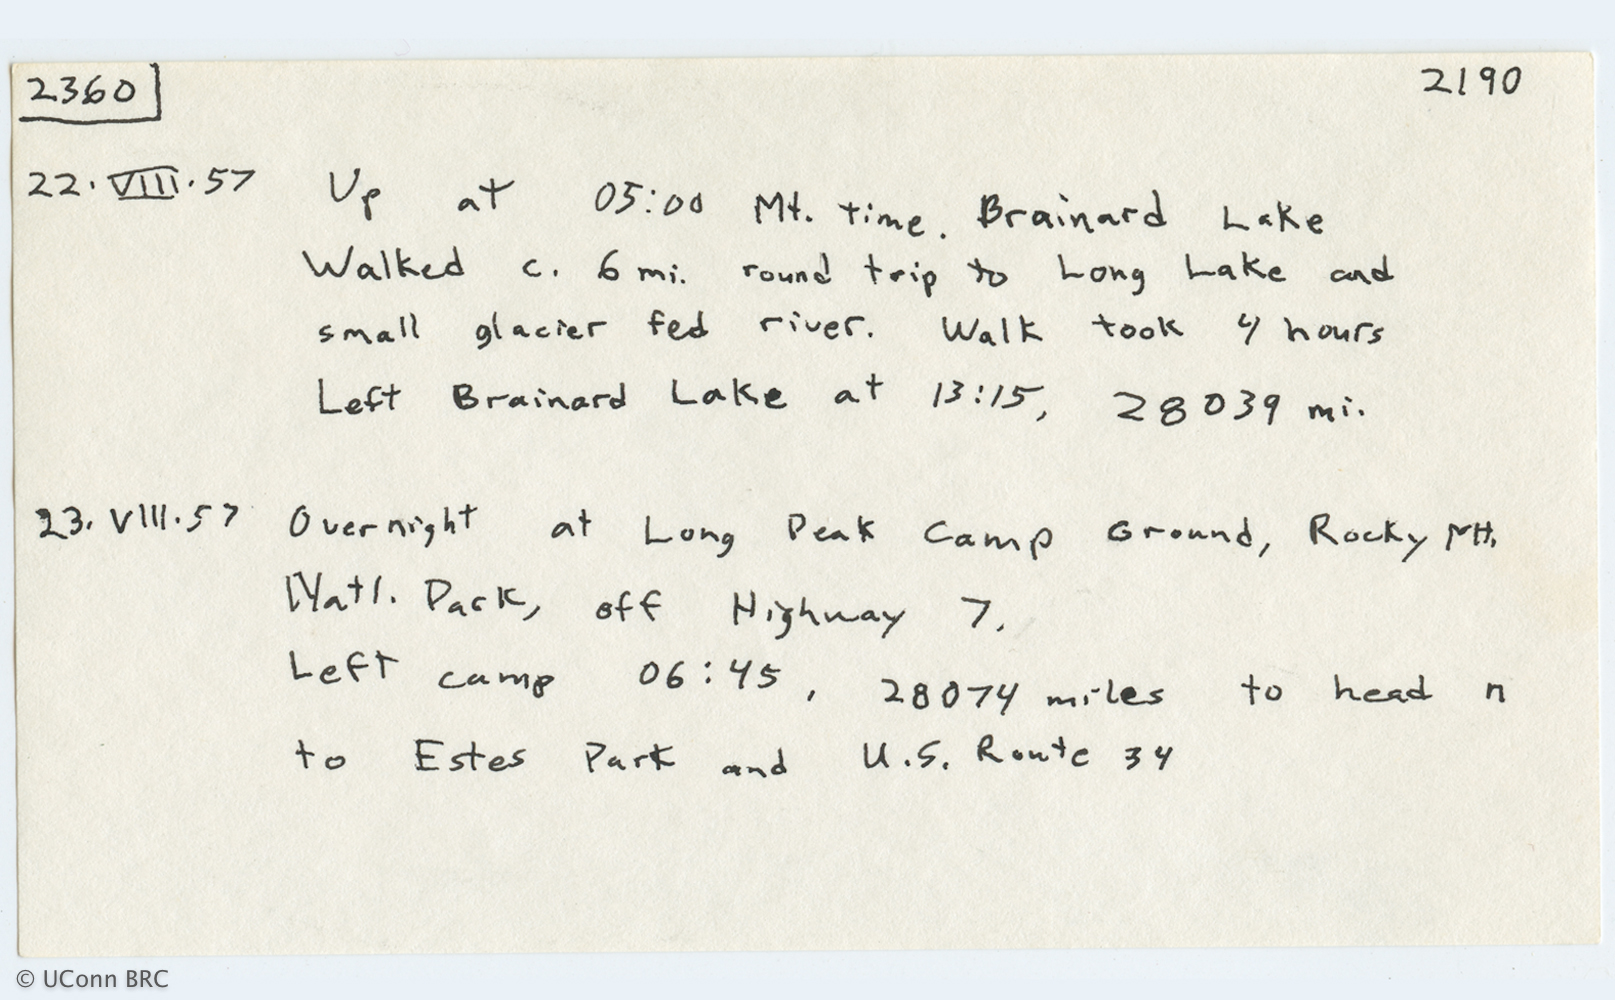 2360
2190
22.VIII.57 Up at 05:00 Mt. time. Brainard Lake
Walked c. 6 mi. round trip to Long Lake and
small glacier fed river. Walk took 4 hours
Left Brainard Lake at 13:15, 28039 mi.
23.VIII.57 Overnight at Long Peak Camp Ground, Rocky Mt.
Natl. Park, off Highway 7.
Left camp 06:45, 28074 miles to head n
to Estes Park and U.S. Route 34
© UConn BRC